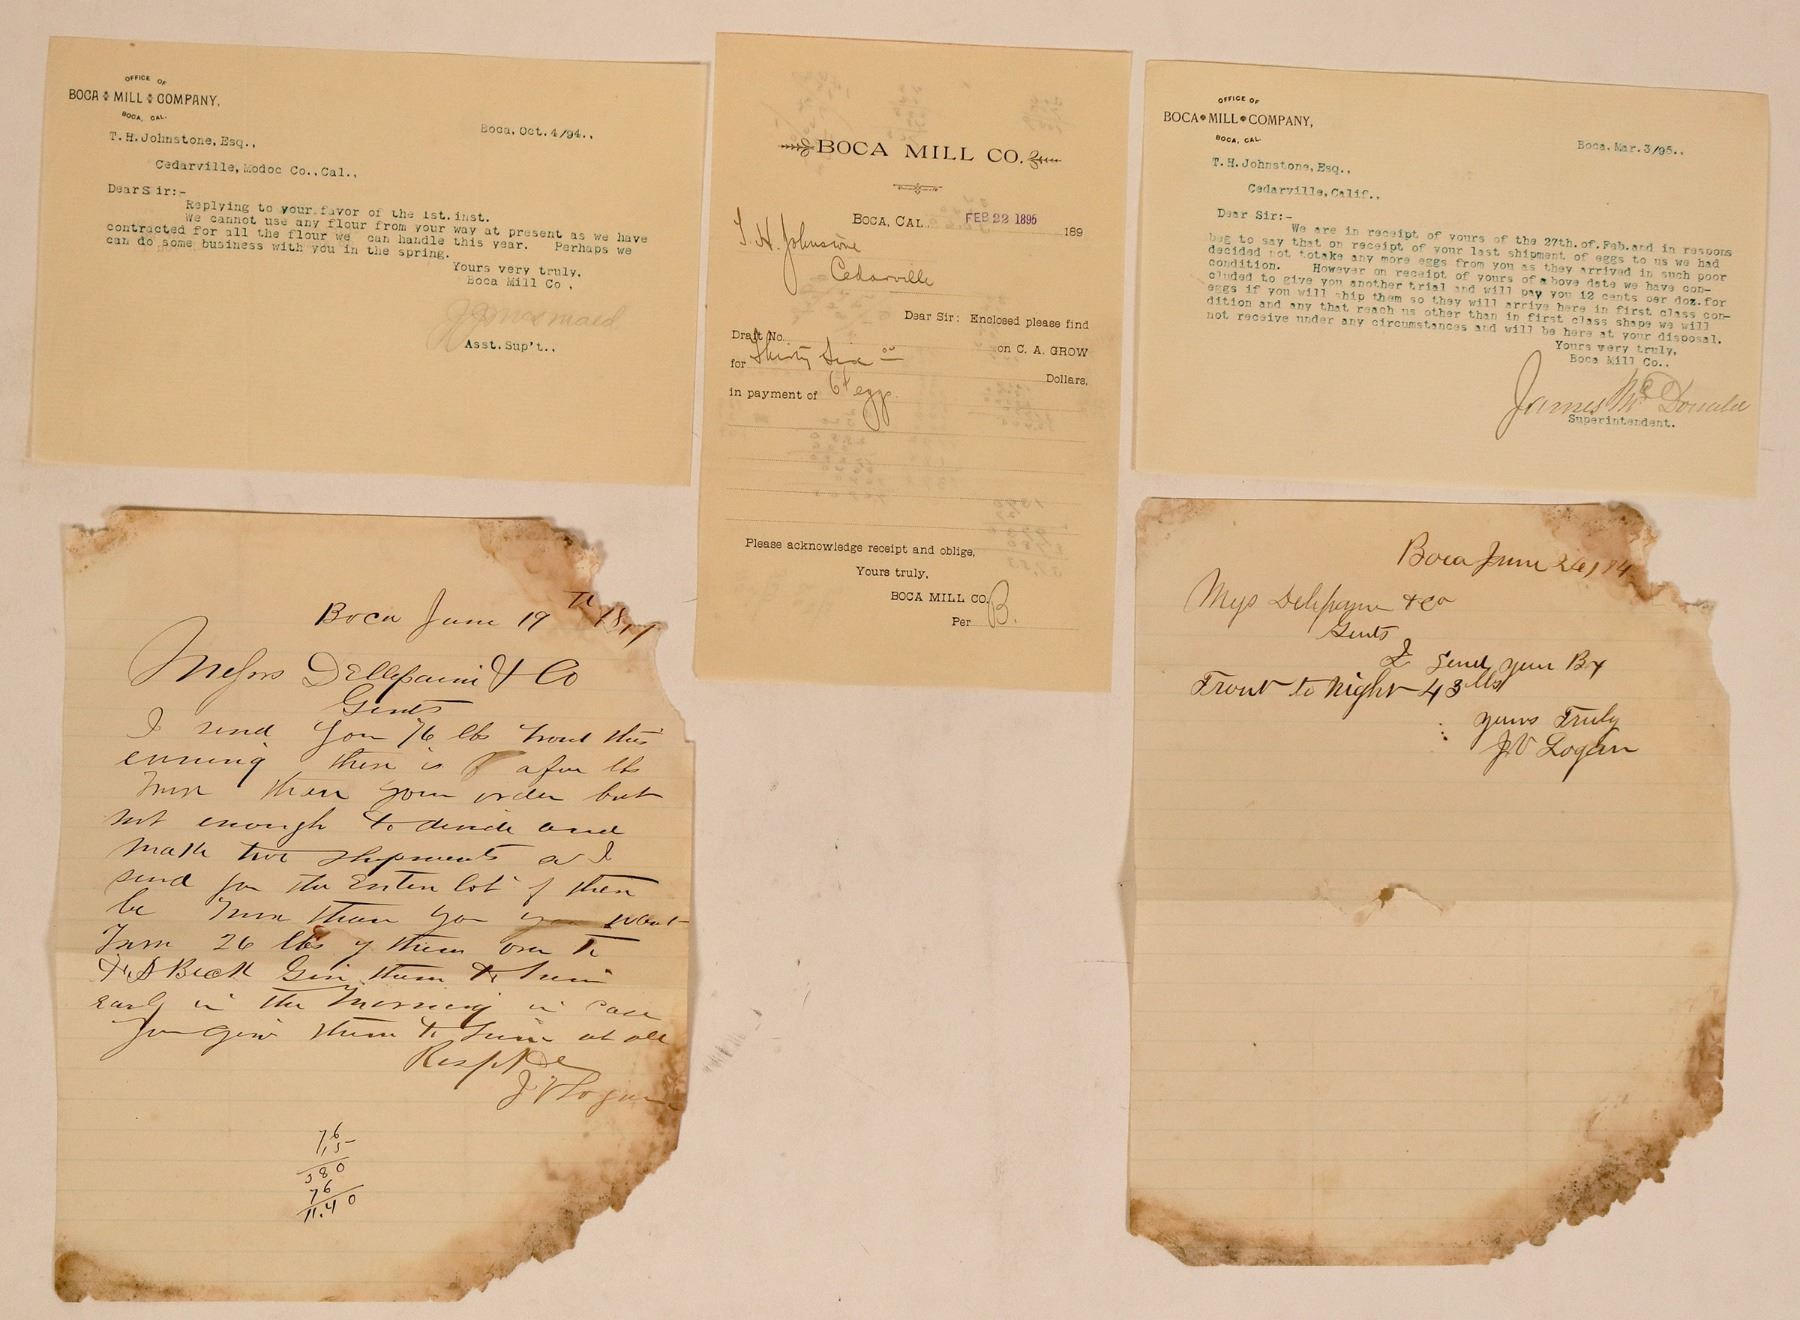 OFFICE OF
BOCA MILL COMPANY,
BOCA, CAL.
Boca, Oct. 4/94..
T.H.Johnstone, Esq..,
Cedarville, Modoc Co.,Cal..
Dear S ir:-
Replying to your favor of the 1st. inst.
We cannot use any flour from your way at present as we have
contracted for all the flour we can handle this year. Perhaps we
can do some business with you in the spring.
Yours very truly,
Boca Mill Co .
Asst. Sup't..
BOCA MILL CO.
BOCA, CAL. FEB 22 1895 189
T. H. Johnstone
Cedarville
Dear Sir: Enclosed please find
Draft No. on C. A. GROW
for Thirty Six Dollars,
in payment of eggs.
Please acknowledge receipt and oblige,
Yours truly,
BOCA MILL CO.
Per B.
OFFICE OF
BOCA MILL COMPANY,
BOCA, CAL.
Boca, Mar. 3/95..
T.H.Johnstone, Esq..,
Cedarville, Calif..
Dear Sir:-
We are in receipt of yours of the 27th.of.Feb.and in respons
beg to say that on receipt of your last shipment of eggs to us we had
decided not totake any more eggs from you as they arrived in such poor
condition. However on receipt of yours of above date we have con-
cluded to give you another trial and will pay you 12 cents per doz.for
eggs if you will ship them so they will arrive here in first class con-
dition and any that reach us other than in first class shape we will
not receive under any circumstances and will be here at your disposal.
Yours very truly,
Boca Mill Co..
James McDonald
Superintendent.
Boca June 19th
Messrs Dellepaini & Co
Gents
I send you 76 lbs trout this
evening there is a few lbs
more then your order but
not enough to divide and
make two shipments so I
send you the Enten lot if then
be more than you want
Turn 26 lbs of them over to
Beck Give them to him
Early in the morning in case
you give them to him at all
J V Logan
76
15
380
76
11.40
Boca June 26, 84
Dellepaine & Co
Gents
I send you By
Trout to night 43 lbs
yours Truly
J V Logan